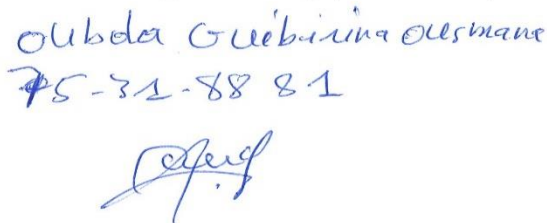 oubda Guébirina ousmane
75-31-88 81